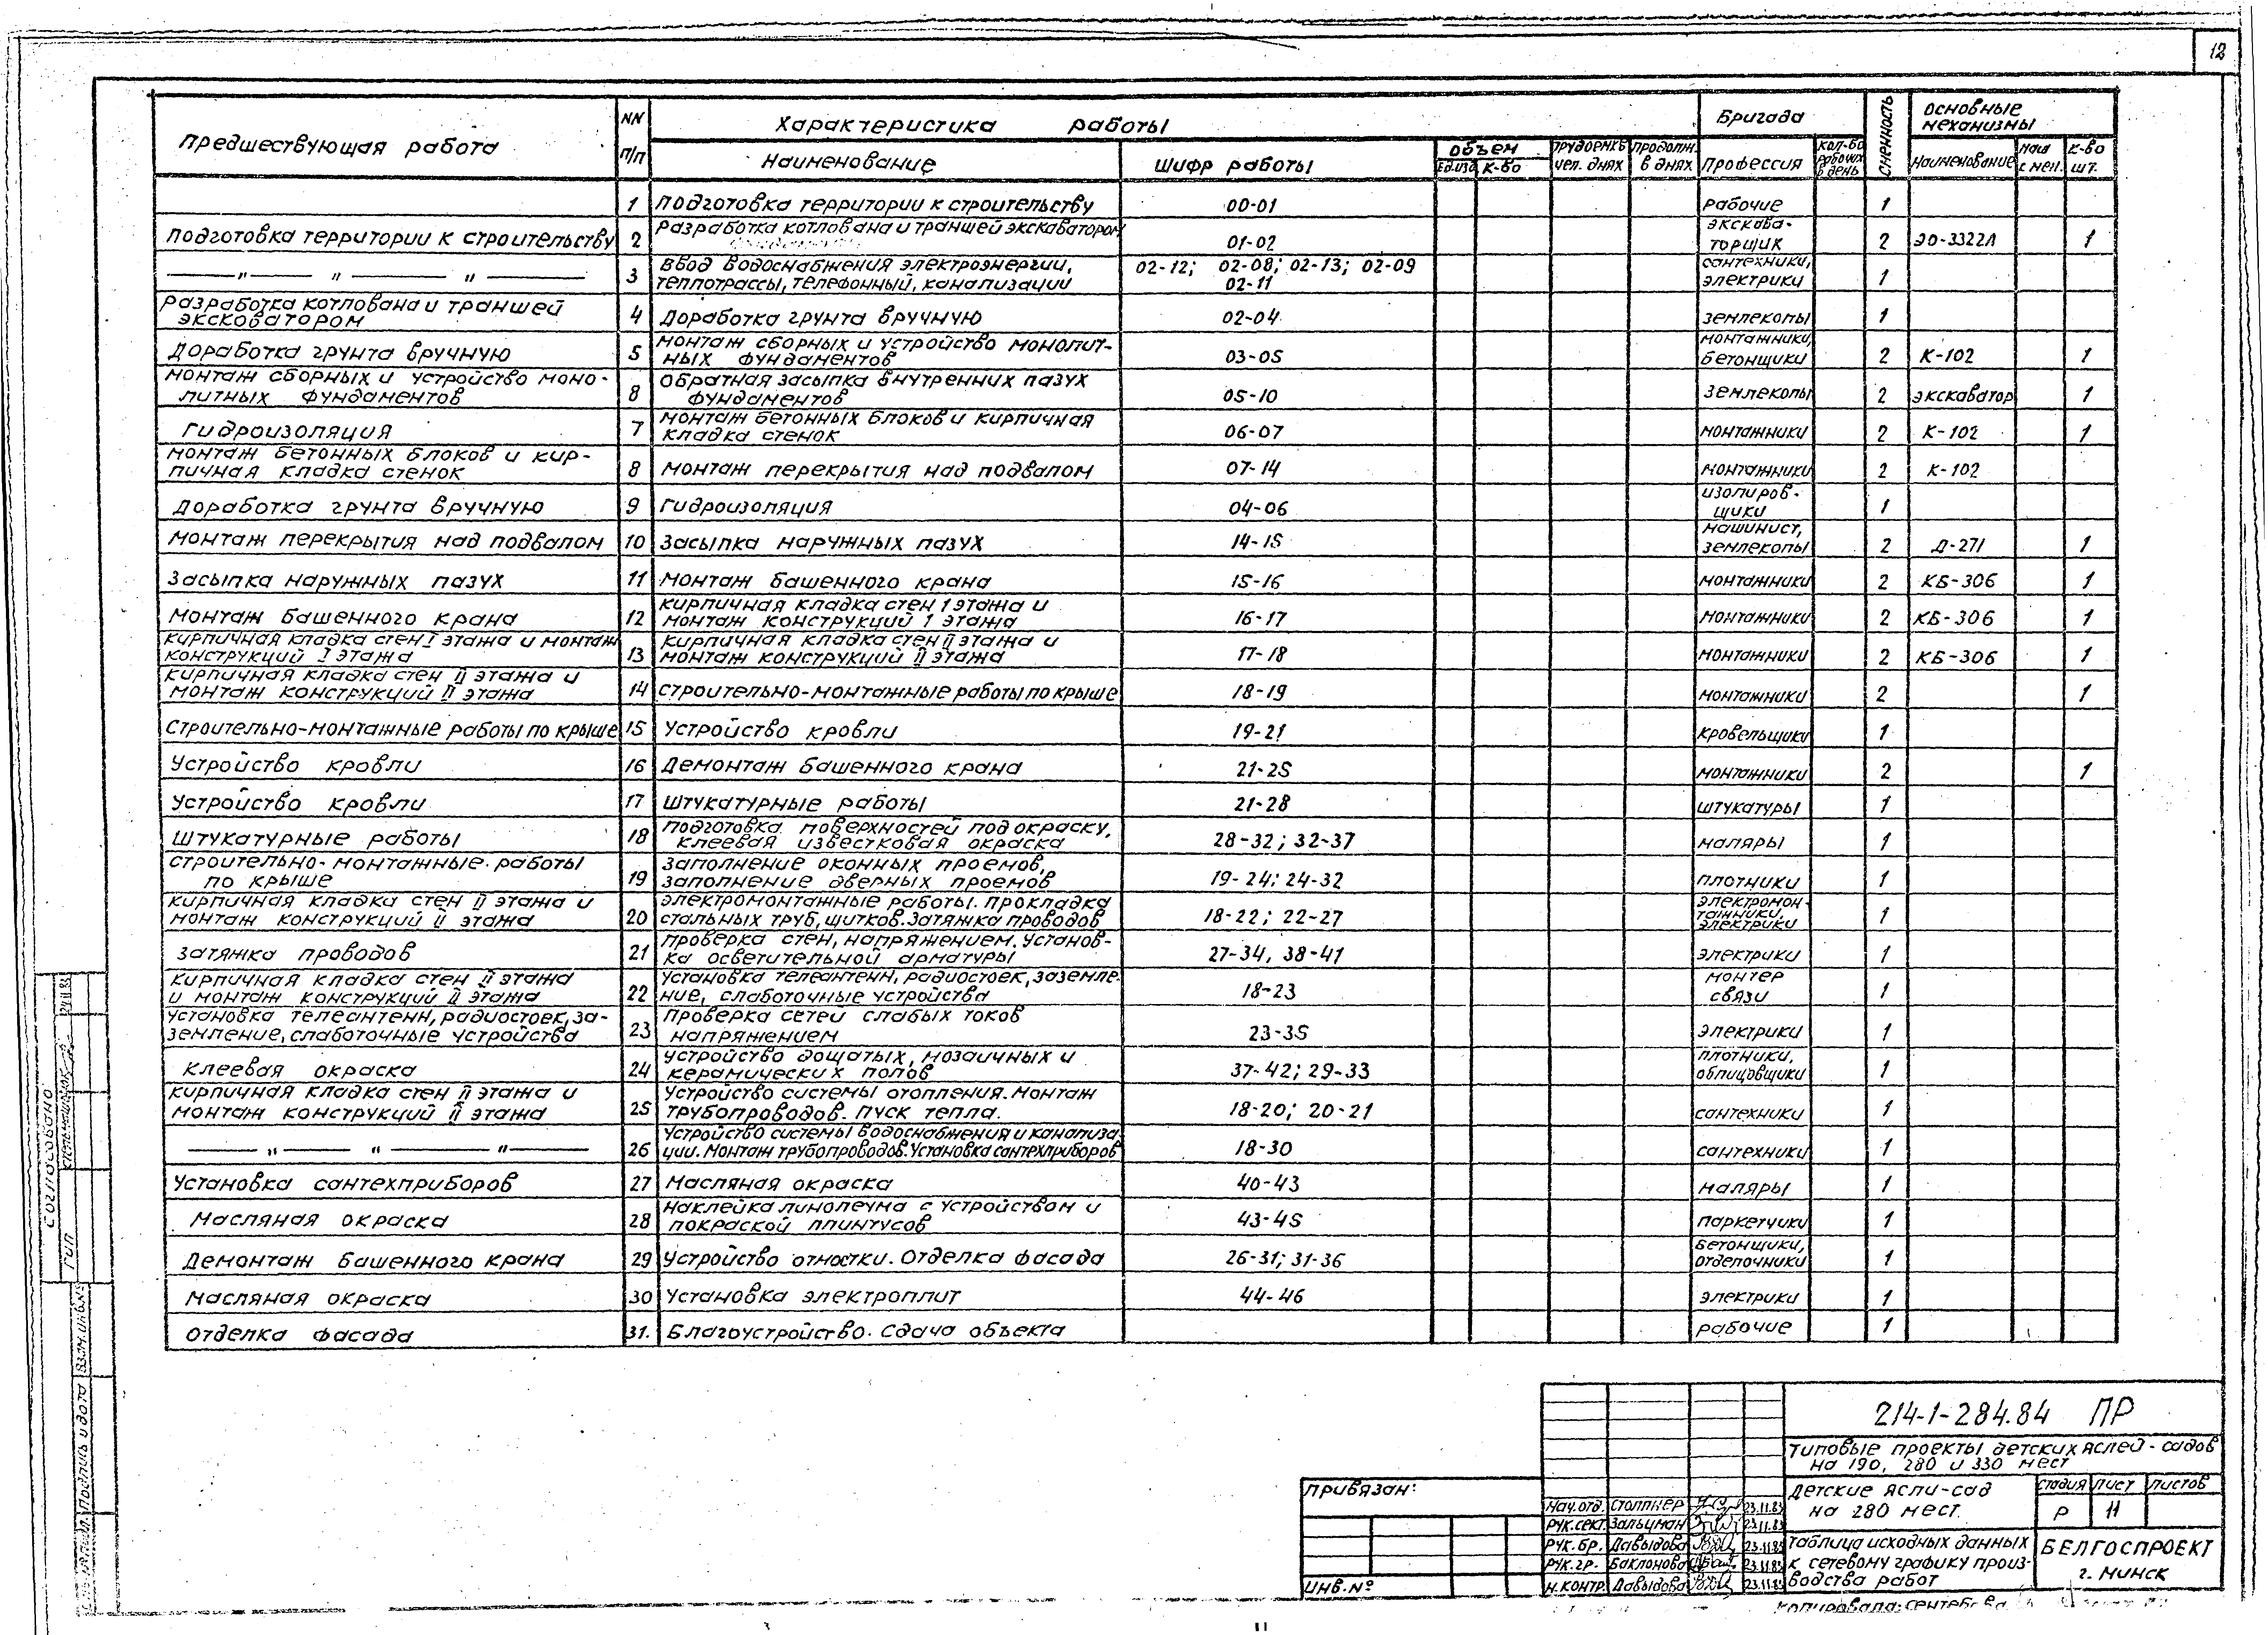 12
Предшествующая работа
NN п/п
Характеристика работы
Бригада
Сменность
Основные механизмы
Наименование
Шифр работы
Объем
Ед.изм К-во
Трудоемк. чел. днях
Продолж. в днях
Профессия
Кол-во рабочих в день
Наименование
маш
с мен.
К-во шт.
1 Подготовка территории к строительству 00-01 Рабочие 1
Подготовка территории к строительству 2 Разработка котлована и траншей экскаватором 01-02 Экскава-
торщик 2 ЭО-3322А 1
—"— "— "— 3 Ввод водоснабжения электроэнергии, 02-12; 02-08; 02-13; 02-09 сантехники,
теплотрассы, телефонный, канализации 02-11 электрики 1
Разработка котлована и траншей
экскаватором 4 Доработка грунта вручную 02-04 землекопы 1
Доработка грунта вручную 5 Монтаж сборных и устройство монолит-
ных фундаментов 03-05 монтажники,
бетонщики 2 К-102 1
Монтаж сборных и устройство моно-
литных фундаментов 8 Обратная засыпка внутренних пазух
фундаментов 05-10 землекопы 2 экскаватор 1
Гидроизоляция 7 Монтаж бетонных блоков и кирпичная
кладка стенок 06-07 монтажники 2 К-102 1
Монтаж бетонных блоков и кир-
пичная кладка стенок 8 Монтаж перекрытия над подвалом 07-14 монтажники 2 К-102
Доработка грунта вручную 9 Гидроизоляция 04-06 изолиров-
щики 1
Монтаж перекрытия над подвалом 10 Засыпка наружных пазух 14-15 машинист,
землекопы 2 Д-271 1
Засыпка наружных пазух 11 Монтаж башенного крана 15-16 монтажники 2 КБ-306 1
Монтаж башенного крана 12 Кирпичная кладка стен 1 этажа и
монтаж конструкций 1 этажа 16-17 монтажники 2 КБ-306 1
Кирпичная кладка стен I этажа и монтаж
конструкций I этажа 13 Кирпичная кладка стен II этажа и
монтаж конструкций II этажа 17-18 монтажники 2 КБ-306 1
Кирпичная кладка стен II этажа и
монтаж конструкций II этажа 14 Строительно-монтажные работы по крыше 18-19 монтажники 2 1
Строительно-монтажные работы по крыше 15 Устройство кровли 19-21 кровельщики 1
Устройство кровли 16 Демонтаж башенного крана 21-25 монтажники 2 1
Устройство кровли 17 Штукатурные работы 21-28 штукатуры 1
Штукатурные работы 18 Подготовка поверхностей под окраску,
клеевая известковая окраска 28-32; 32-37 маляры 1
Строительно-монтажные работы
по крыше 19 Заполнение оконных проемов,
заполнение дверных проемов 19-24; 24-32 плотники 1
Кирпичная кладка стен II этажа и
монтаж конструкций II этажа 20 Электромонтажные работы. Прокладка
стальных труб, щитков. Затяжка проводов 18-22; 22-27 электромон-
тажники,
электрики 1
Затяжка проводов 21 Проверка стен, напряжением. Установ-
ка осветительной арматуры 27-34, 38-41 электрики 1
Кирпичная кладка стен II этажа
и монтаж конструкций II этажа 22 Установка телеантенн, радиостоек, заземле-
ние, слаботочные устройства 18-23 монтер
связи 1
Установка телеантенн, радиостоек, за-
земление, слаботочные устройства 23 Проверка сетей слабых токов
напряжением 23-35 электрики 1
Клеевая окраска 24 Устройство дощатых, мозаичных и
керамических полов 37-42; 29-33 плотники,
облицовщики 1
Кирпичная кладка стен II этажа и
монтаж конструкций II этажа 25 Устройство системы отопления. Монтаж
трубопроводов. Пуск тепла. 18-20; 20-21 сантехники 1
—"— "— "— 26 Устройство системы водоснабжения и канализа-
ции. Монтаж трубопроводов. Установка сантехприборов 18-30 сантехники 1
Установка сантехприборов 27 Масляная окраска 40-43 маляры 1
Масляная окраска 28 Наклейка линолеума с устройством и
покраской плинтусов 43-45 паркетчики 1
Демонтаж башенного крана 29 Устройство отмостки. Отделка фасада 26-31; 31-36 бетонщики,
отделочники 1
Масляная окраска 30 Установка электроплит 44-46 электрики 1
Отделка фасада 31. Благоустройство. Сдача объекта рабочие 1
Согласовано
ГИП
Взам.инв.№
Подпись и дата
214-1-284.84 ПР
Типовые проекты детских яслей-садов
на 190, 280 и 330 мест
Привязан:
Инв.№
Нач.отд. Столпнер 23.11.83
Рук.сект. Зальцман 23.11.83
Рук.бр. Давыдова 23.11.83
Рук.гр. Баклонова 23.11.83
Н.контр. Давыдова 23.11.83
Детские ясли-сад
на 280 мест.
Стадия Лист Листов
Р 11
Таблица исходных данных
к сетевому графику произ-
водства работ
БЕЛГОСПРОЕКТ
г. Минск
Копировала: Сентебова
11